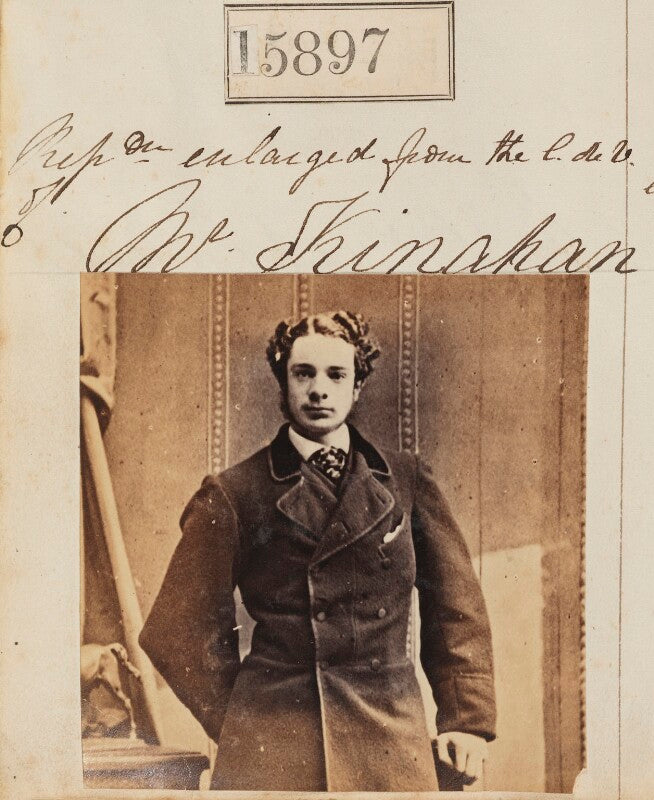 15897
Rep^dn enlarged from the C. de V.
of
Mr. Kinahan